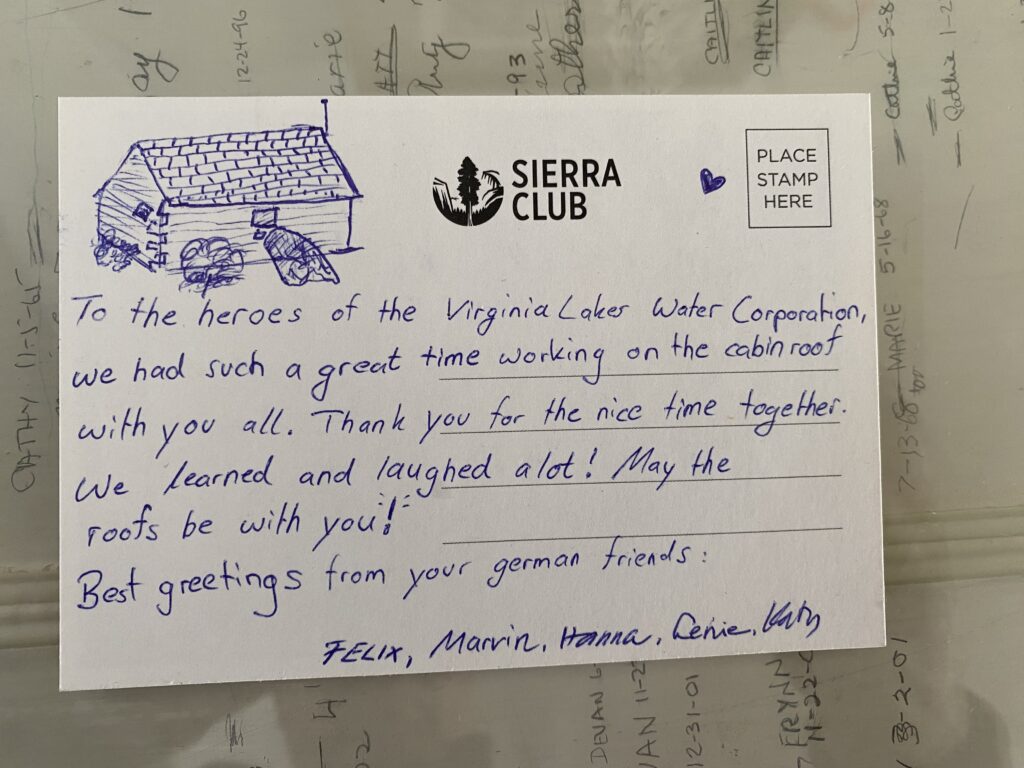 SIERRA
CLUB
PLACE
STAMP
HERE
To the heroes of the Virginia Lakes Water Corporation,
we had such a great time working on the cabin roof
with you all. Thank you for the nice time together.
We learned and laughed a lot! May the
roofs be with you!
Best greetings from your german friends:
FELIX, Marvin, Hanna,
12-24-96
CAITLIN
CATHY 11-5-65
MARIE 5-16-68
7-13-68
Cathie 5-8
12-31-01
DEVAN 6
VAN 11-2
ERYNN